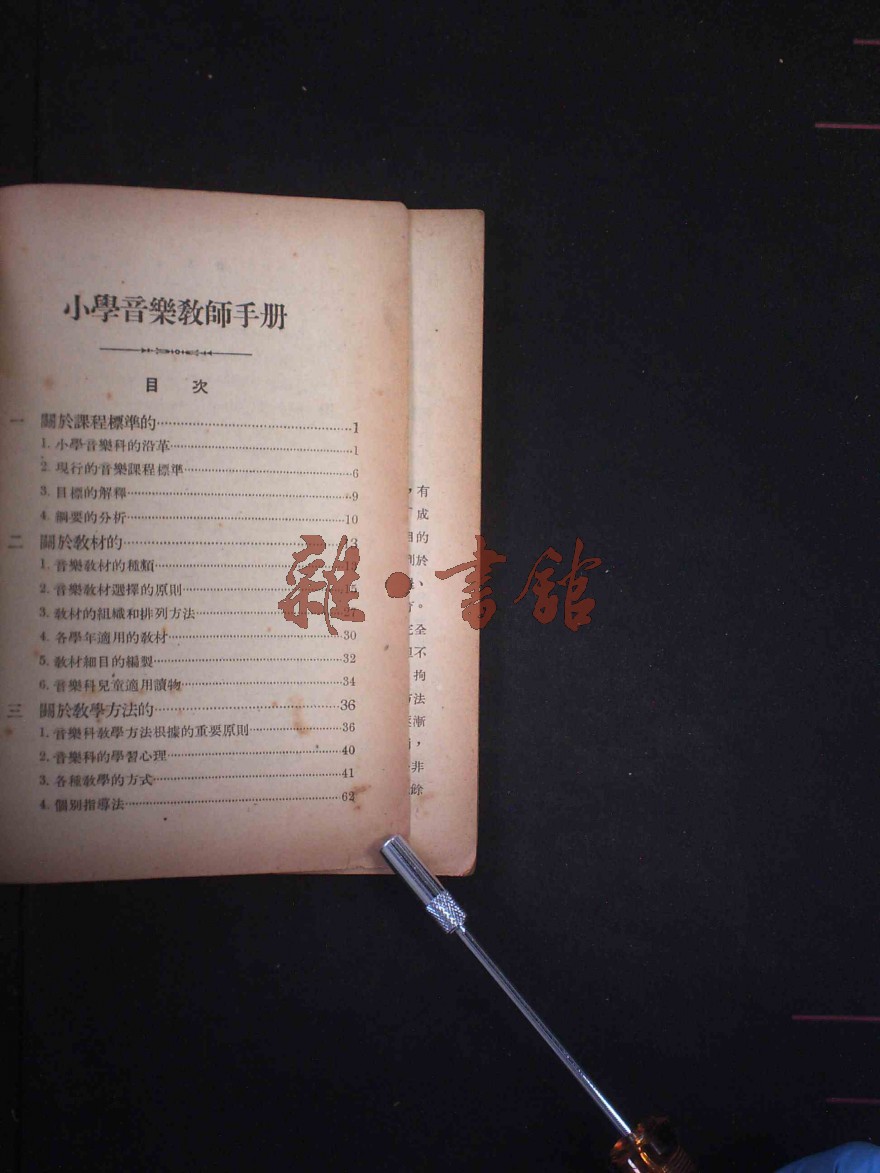 小學音樂敎師手册
目 次
一 關於課程標準的……1
1. 小學音樂科的沿革……1
2. 現行的音樂課程標準……6
3. 目標的解釋……9
4. 綱要的分析……10
二 關於敎材的……13
1. 音樂敎材的種類……13
2. 音樂敎材選擇的原則……15
3. 敎材的組織和排列方法……27
4. 各學年適用的敎材……30
5. 敎材細目的編製……32
6. 音樂科兒童適用讀物……34
三 關於敎學方法的……36
1. 音樂科敎學方法根據的重要原則……36
2. 音樂科的學習心理……40
3. 各種敎學的方式……41
4. 個別指導法……62
，有
成
的
於
、
。
全
不
拘
法
漸
，
非
餘
雜·書館